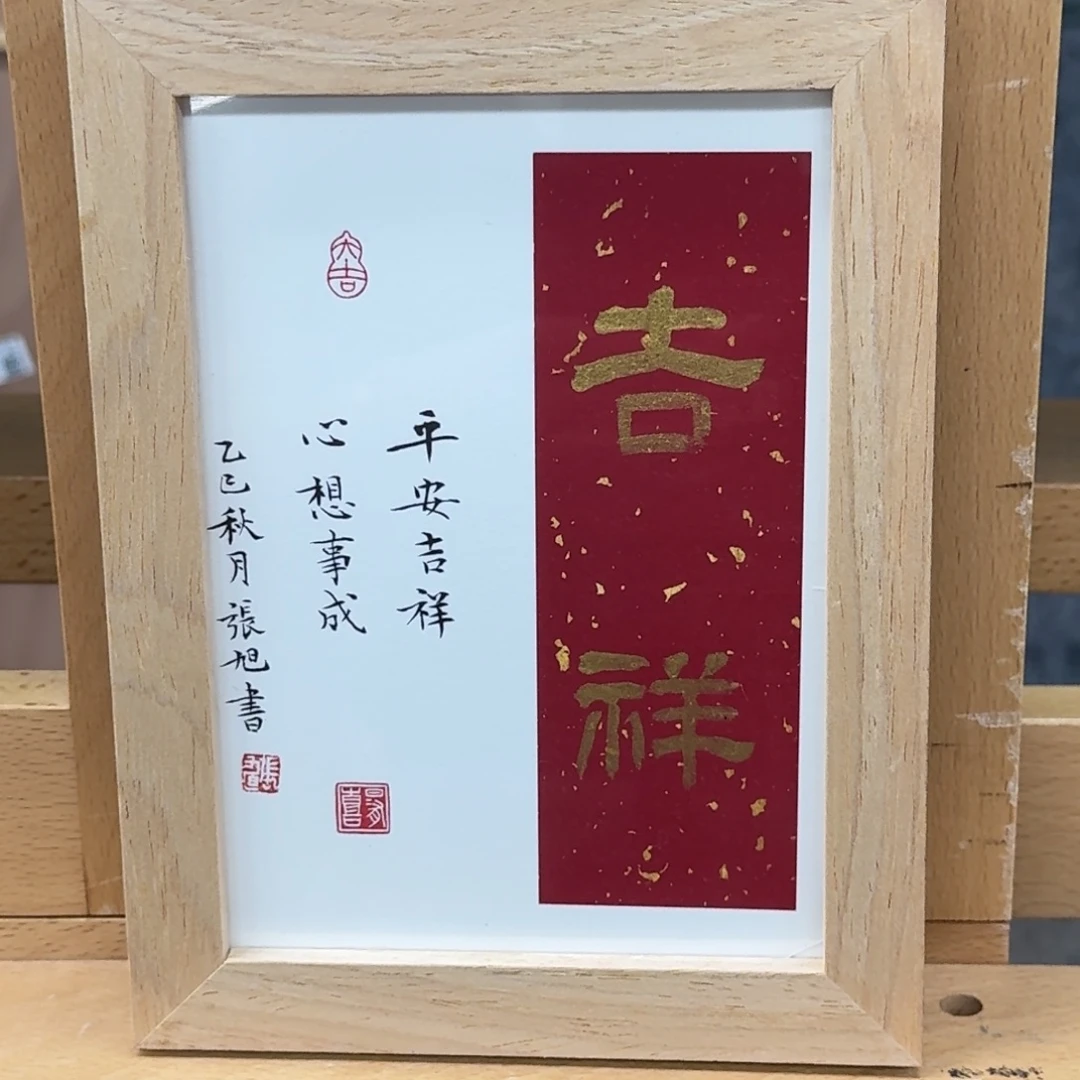 吉祥
平安吉祥
心想事成
乙巳秋月張旭書
大吉